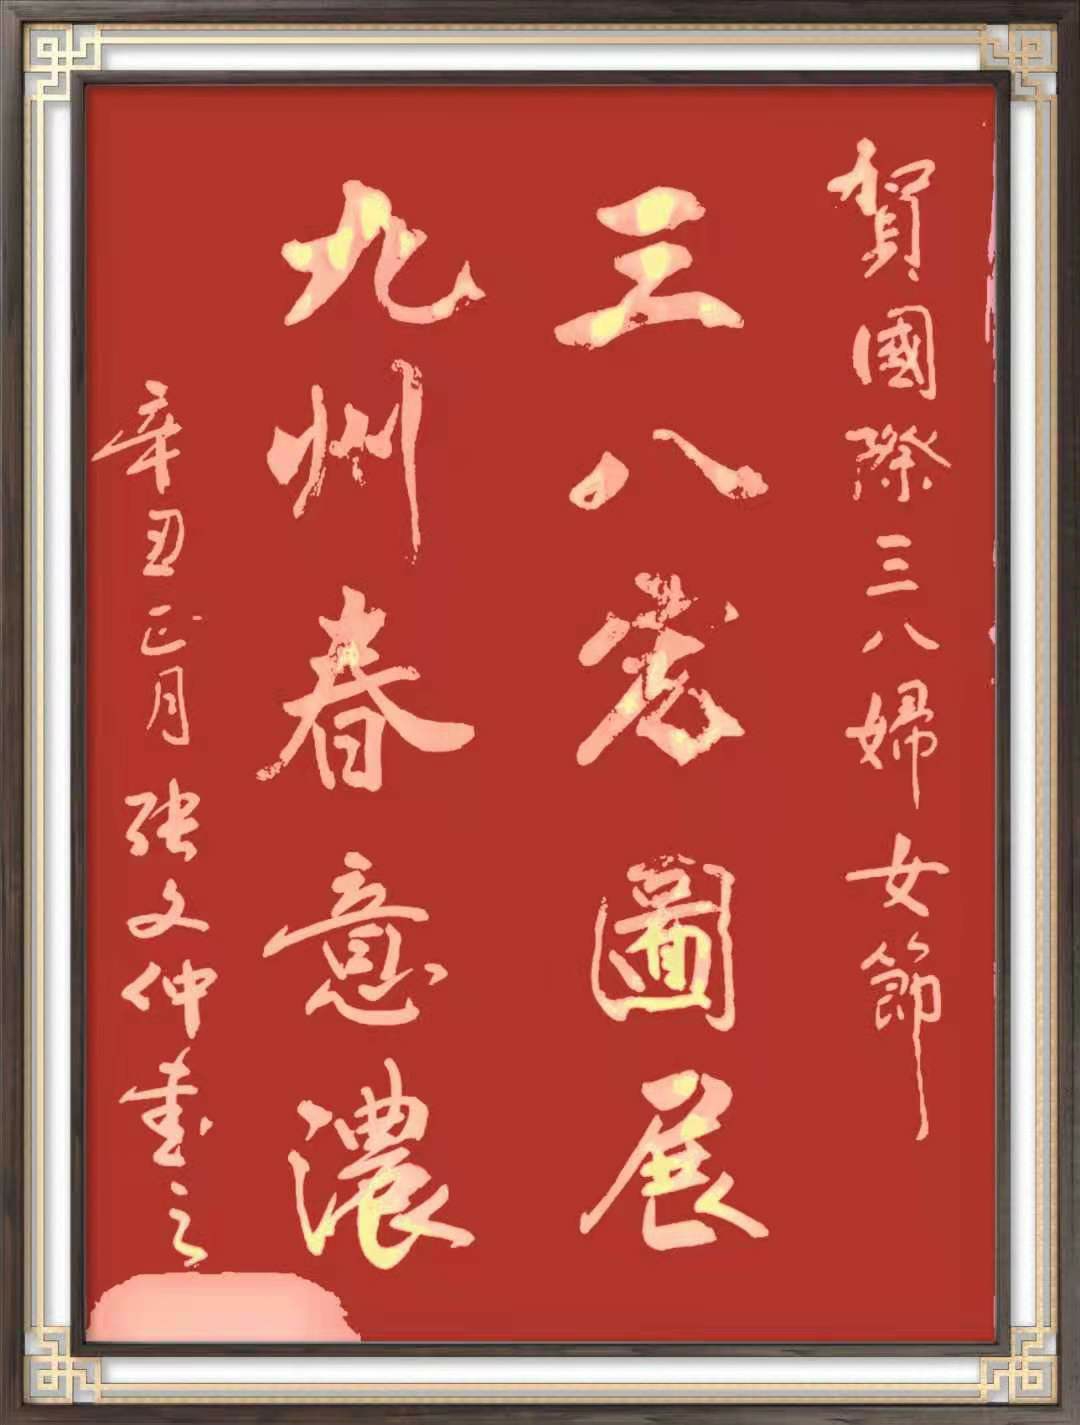 賀國際三八婦女節
三八宏圖展
九州春意濃
辛丑正月張文仲書之